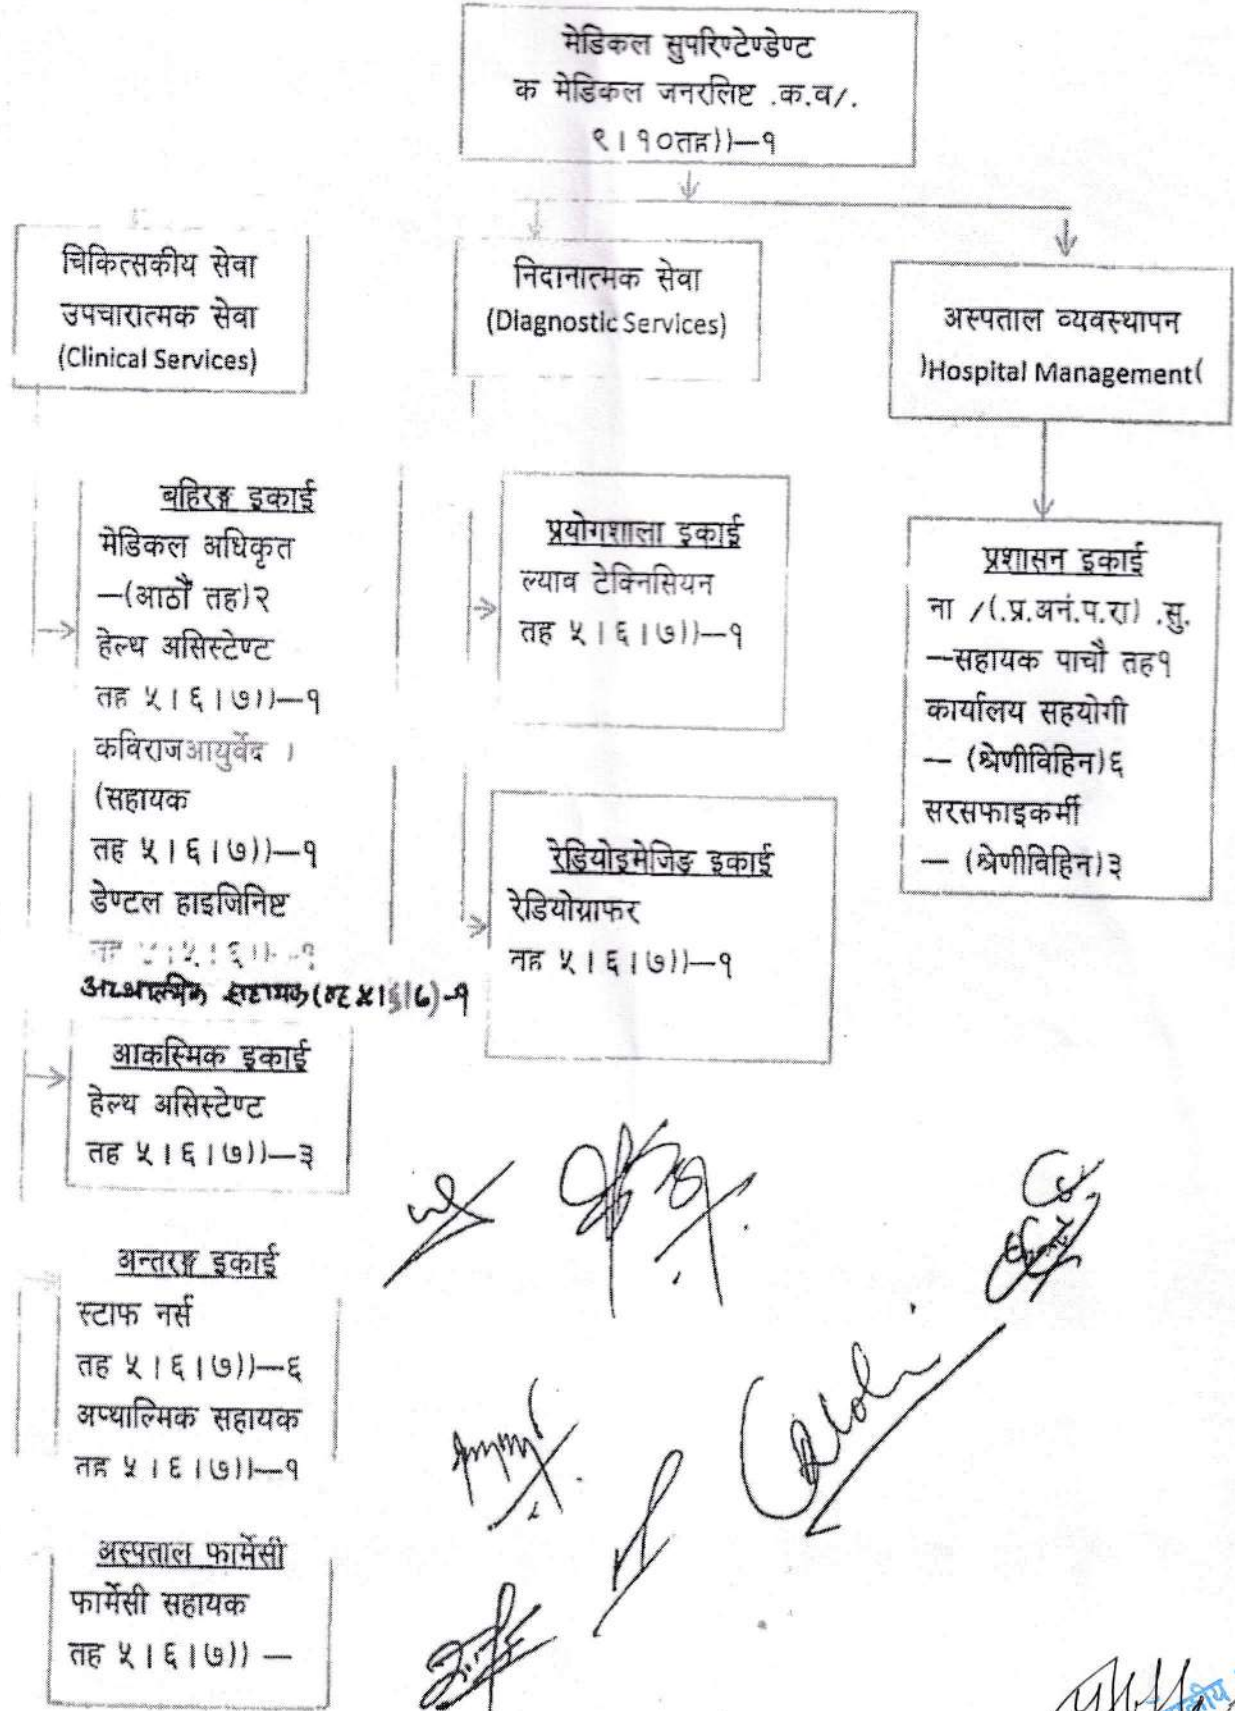 मेडिकल सुपरिण्टेण्डेण्ट
क मेडिकल जनरलिष्ट .क.व/.
९।१०तह))—१
चिकित्सकीय सेवा
उपचारात्मक सेवा
(Clinical Services)
निदानात्मक सेवा
(Diagnostic Services)
अस्पताल व्यवस्थापन
)Hospital Management(
बहिरङ्ग इकाई
मेडिकल अधिकृत
—(आठौं तह)२
हेल्थ असिस्टेण्ट
तह ५।६।७))—१
कविराजआयुर्वेद ।
(सहायक
तह ५।६।७))—१
डेण्टल हाइजिनिष्ट
सहायक
आकस्मिक इकाई
हेल्थ असिस्टेण्ट
तह ५।६।७))—३
अन्तरङ्ग इकाई
स्टाफ नर्स
तह ५।६।७))—६
अप्थाल्मिक सहायक
तह ५।६।७))—१
अस्पताल फार्मेसी
फार्मेसी सहायक
तह ५।६।७)) —
प्रयोगशाला इकाई
ल्याव टेक्निसियन
तह ५।६।७))—१
रेडियोइमेजिङ इकाई
रेडियोग्राफर
तह ५।६।७))—१
प्रशासन इकाई
ना /(.प्र.अनं.प.रा) .सु.
—सहायक पाचौ तह१
कार्यालय सहयोगी
— (श्रेणीविहिन)६
सरसफाइकर्मी
— (श्रेणीविहिन)३